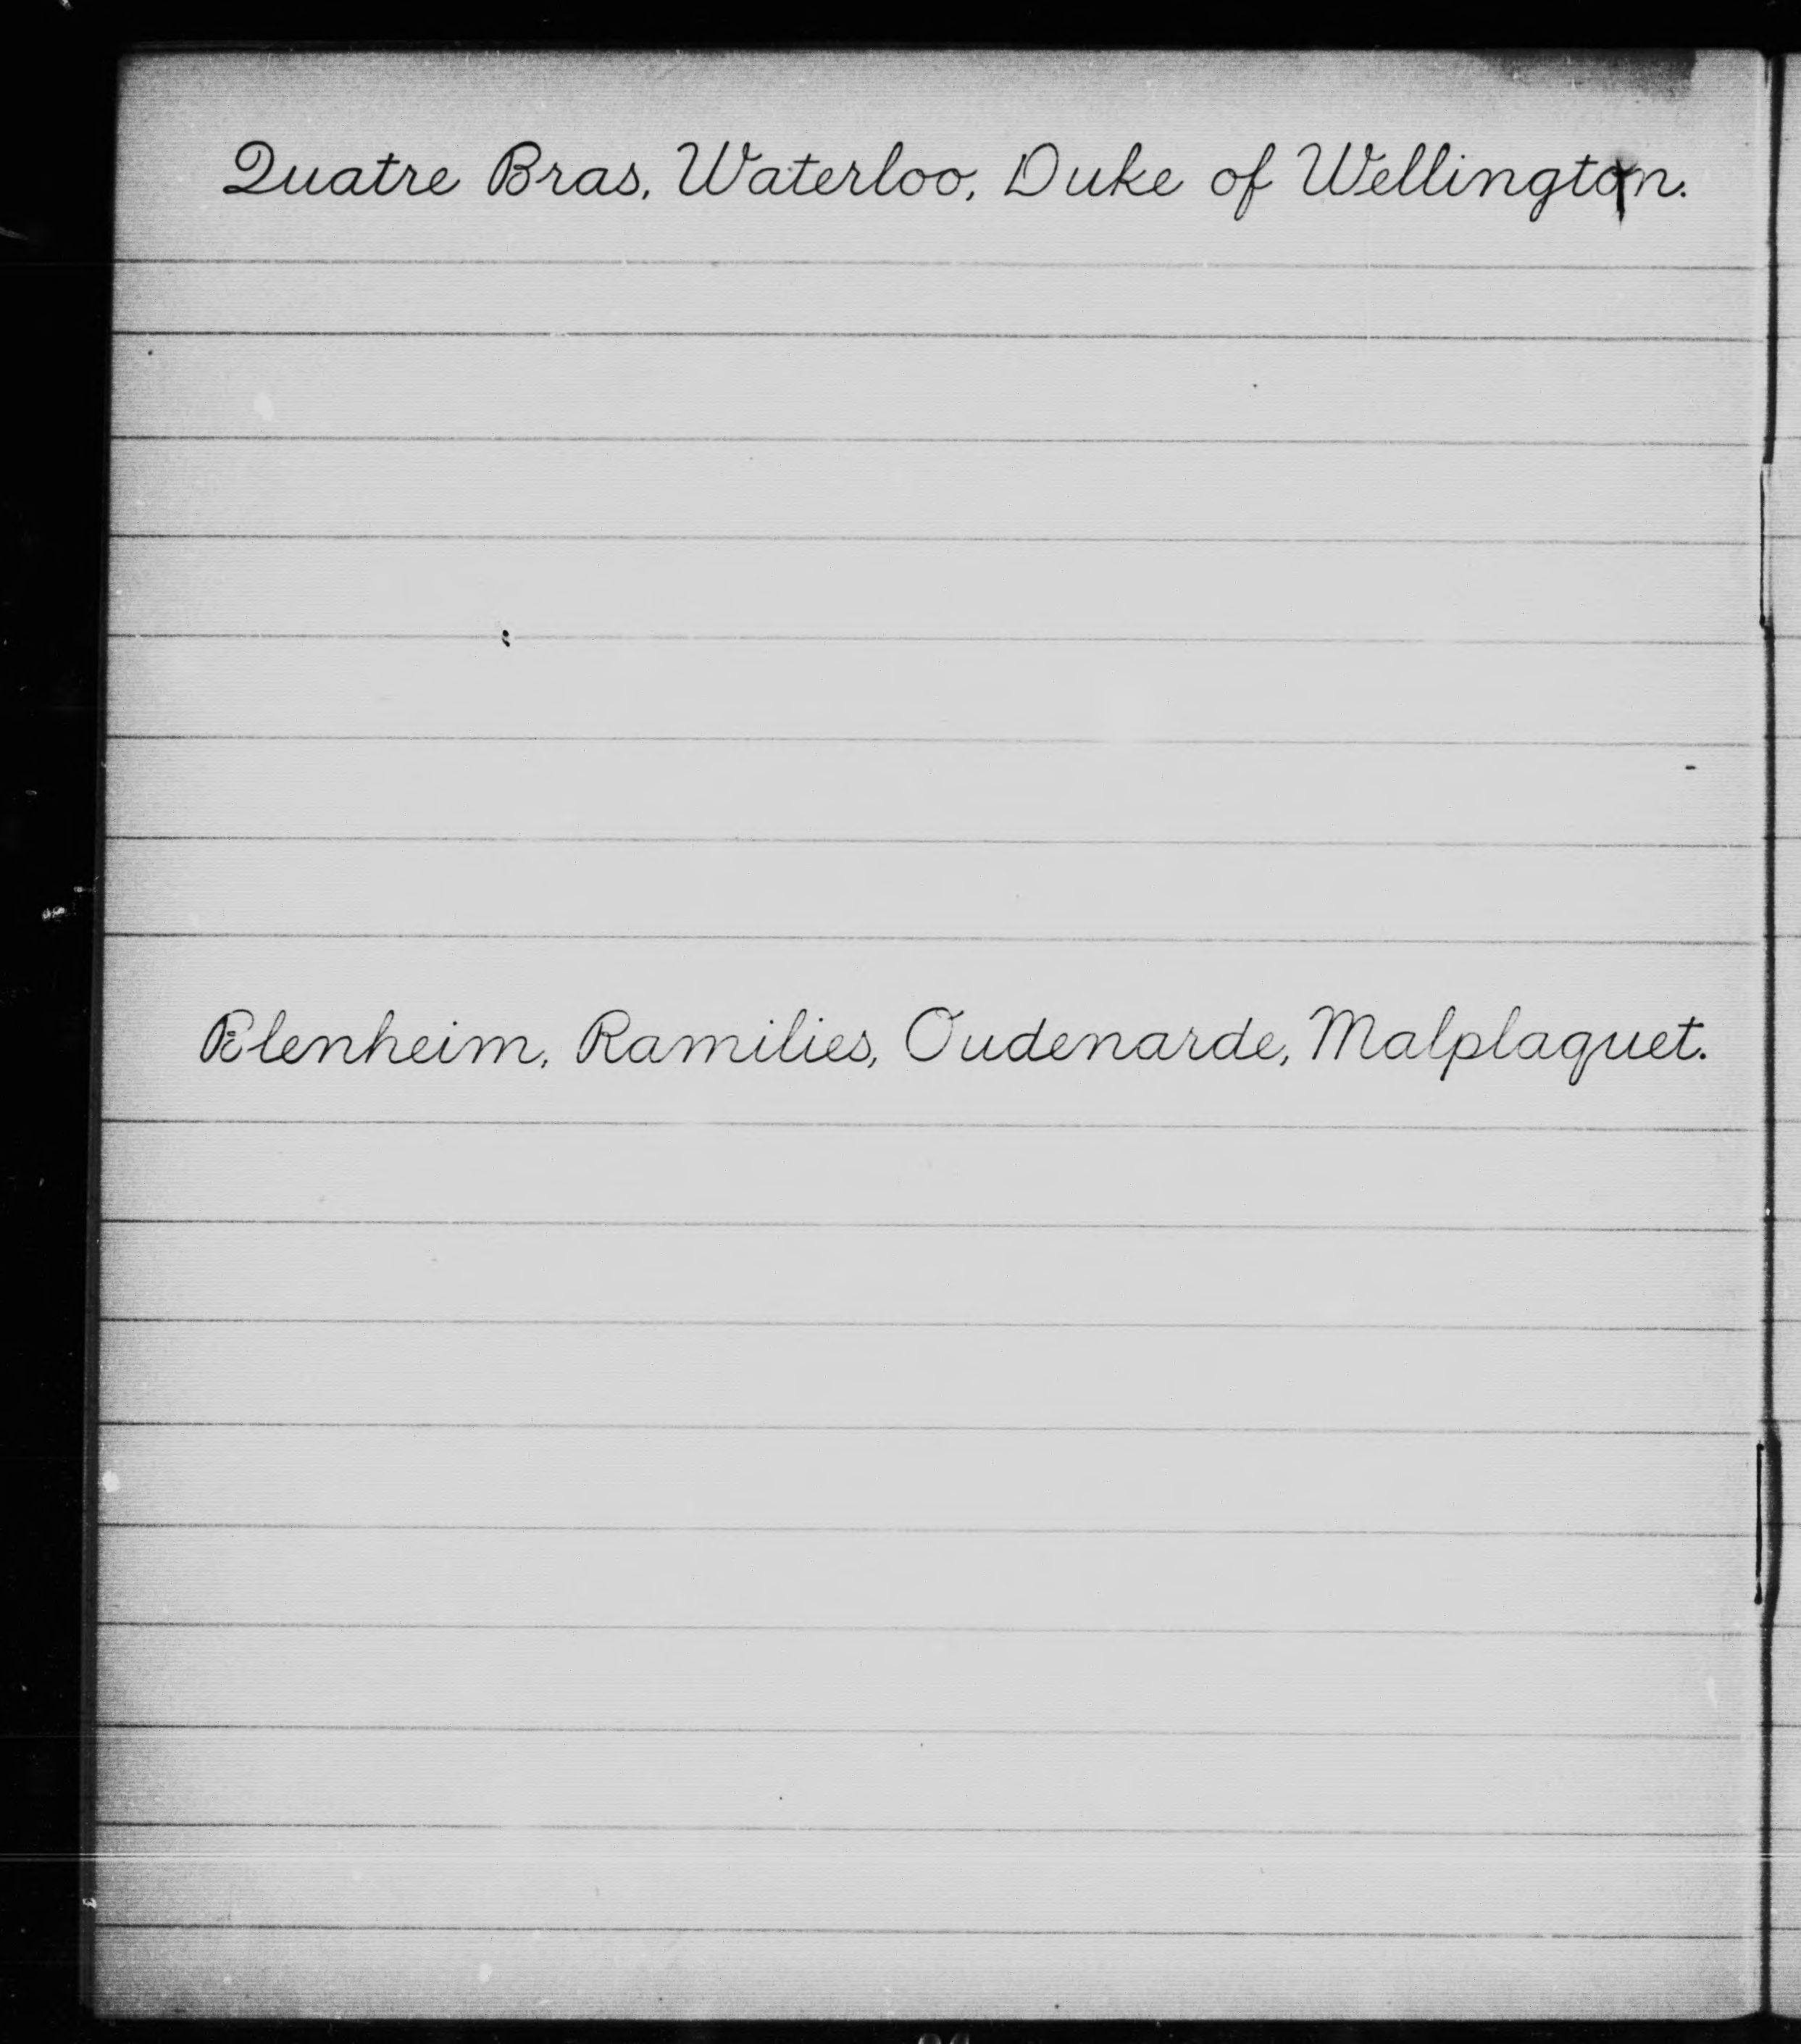 Quatre Bras, Waterloo, Duke of Wellington.
Blenheim, Ramilies, Oudenarde, Malplaquet.